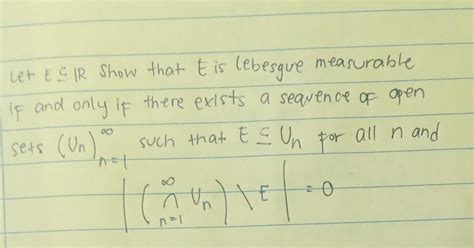 Let E ⊆ ℝ Show that E is Lebesgue measurable
if and only if there exists a sequence of open
sets (Uₙ)ₙ₌₁^∞ such that E ⊆ Uₙ for all n and
|(∩ₙ₌₁^∞ Uₙ) \ E| = 0